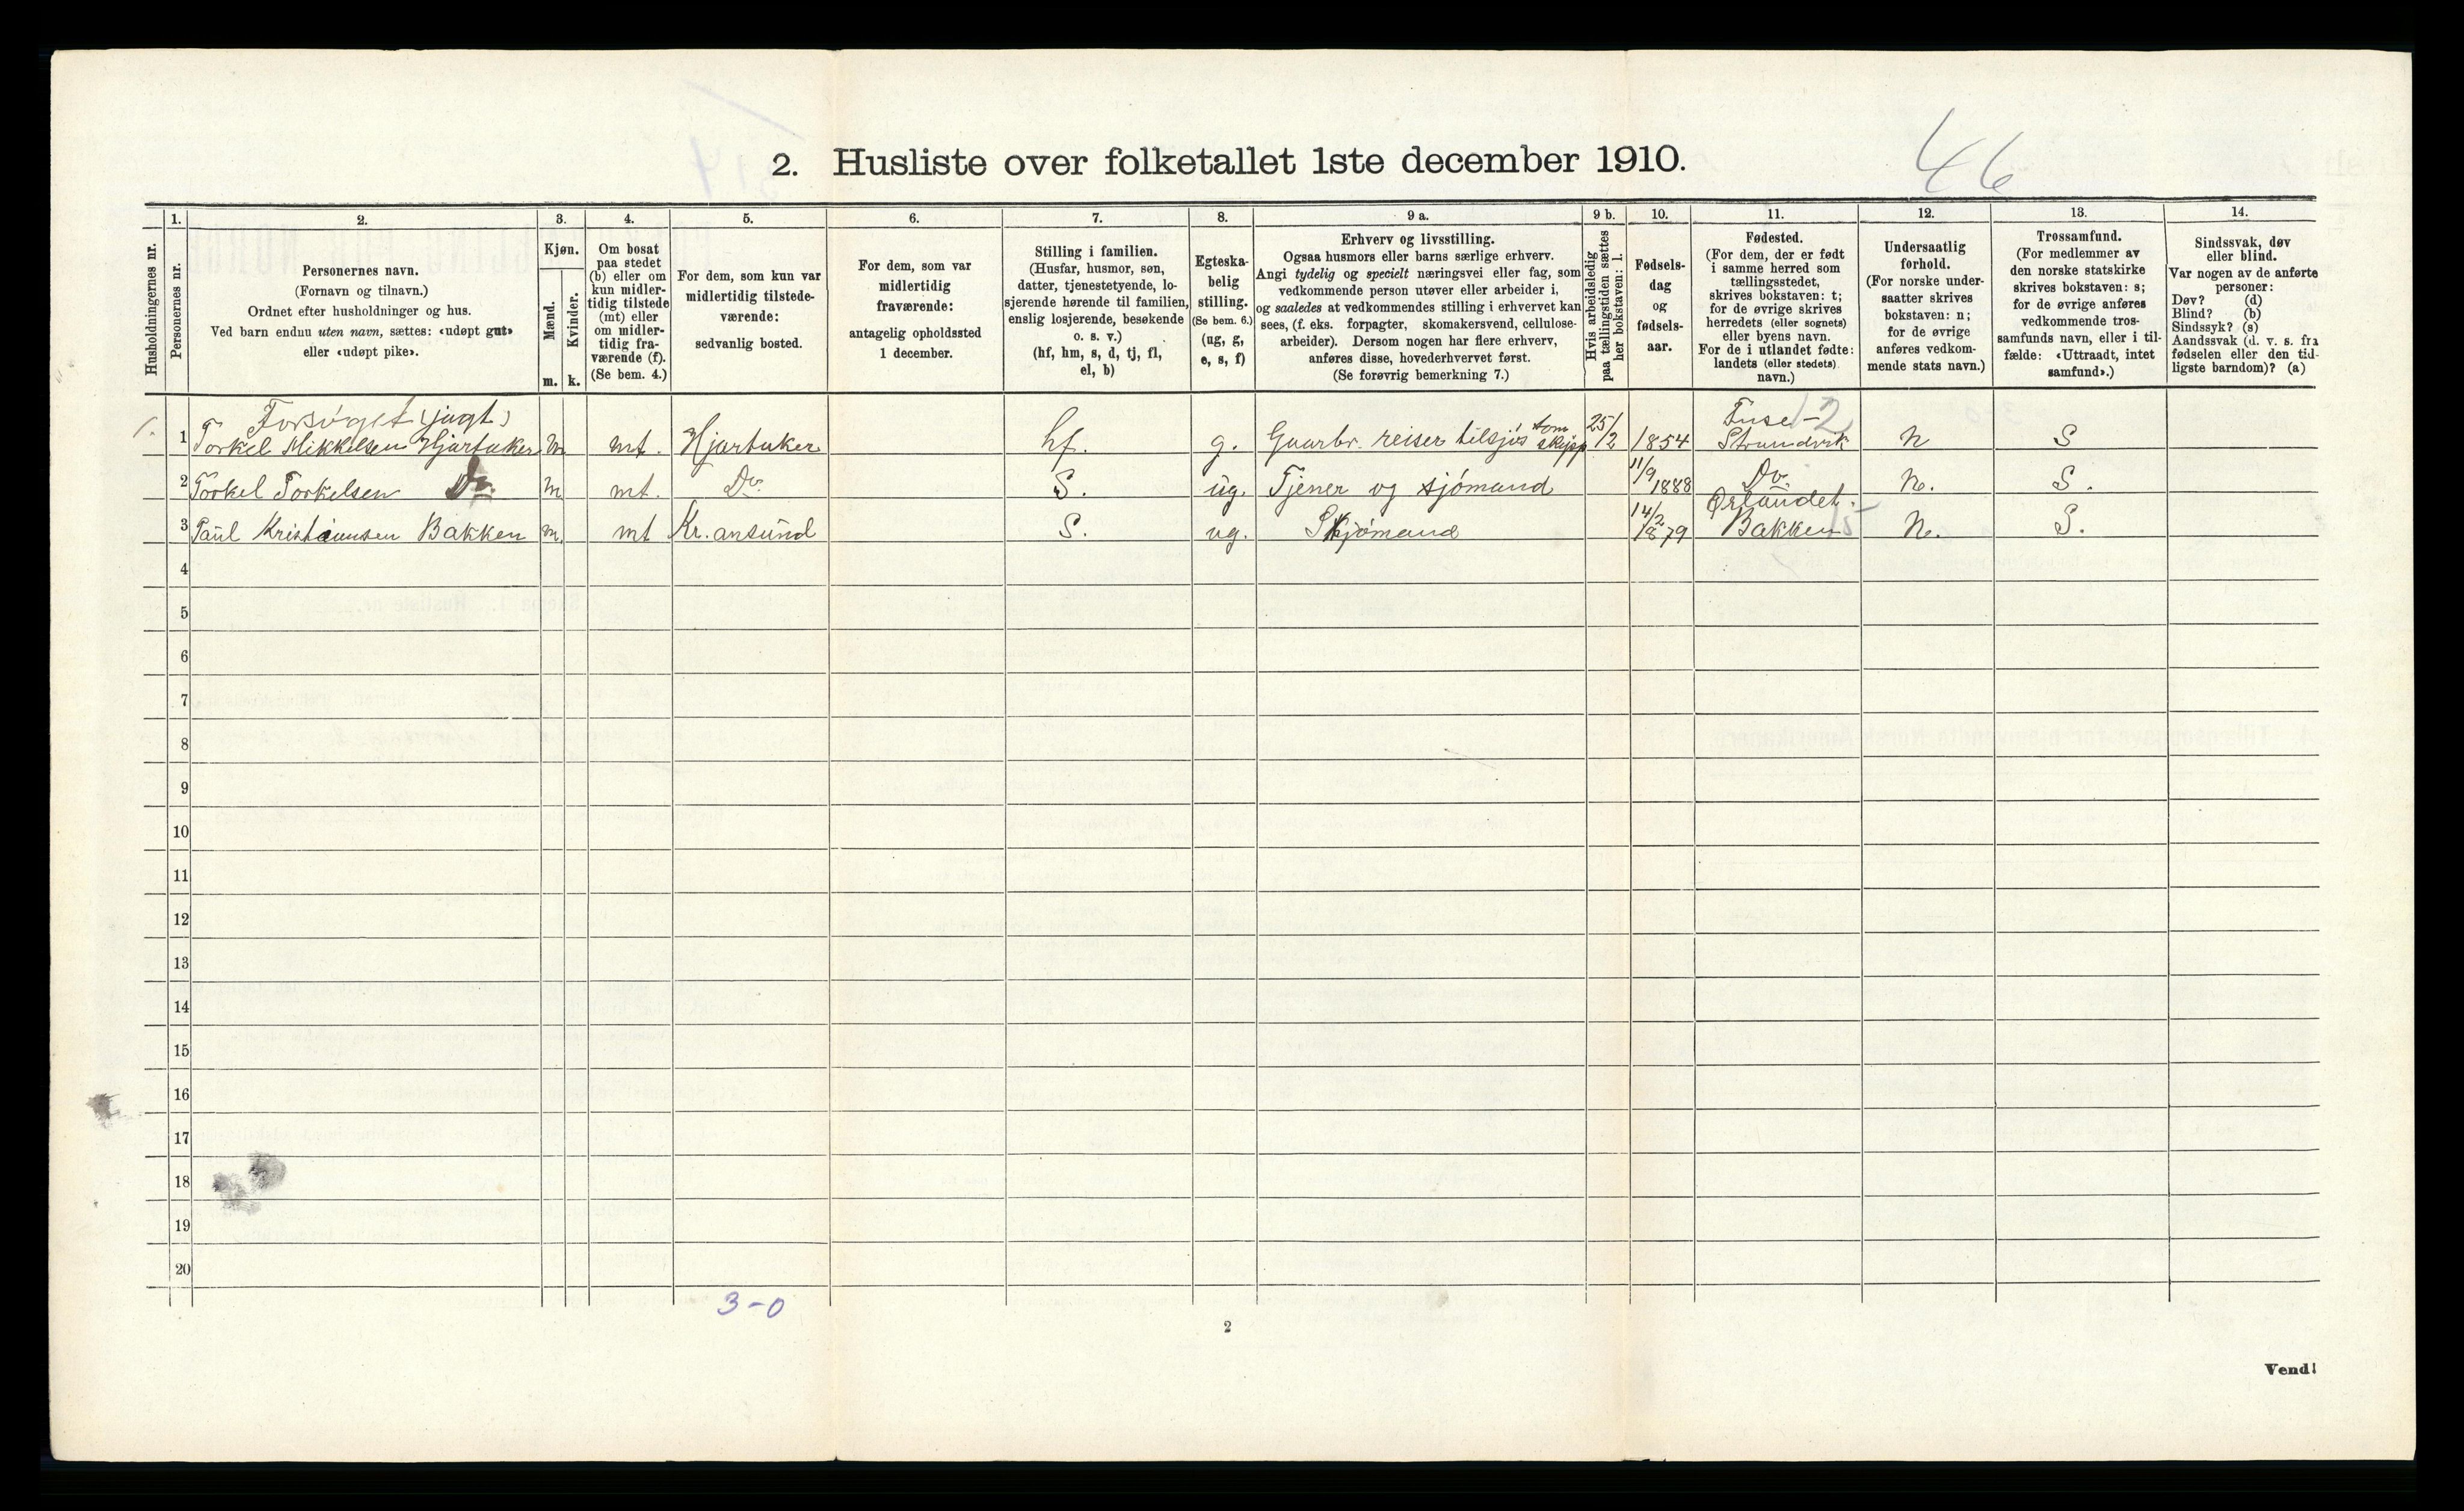 46
2. Husliste over folketallet 1ste december 1910.
Husholdningernes nr.
1.
Personernes nr.
2.
Personernes navn.
(Fornavn og tilnavn.)
Ordnet efter husholdninger og hus.
Ved barn endnu uten navn, sættes: «udøpt gut»
eller «udøpt pike».
3.
Kjøn.
Mænd.
Kvinder.
m. k.
4.
Om bosat
paa stedet
(b) eller om
kun midler-
tidig tilstede
(mt) eller
om midler-
tidig fra-
værende (f).
(Se bem. 4.)
5.
For dem, som kun var
midlertidig tilstede-
værende:
sedvanlig bosted.
6.
For dem, som var
midlertidig
fraværende:
antagelig opholdssted
1 december.
7.
Stilling i familien.
(Husfar, husmor, søn,
datter, tjenestetyende, lo-
sjerende hørende til familien,
enslig losjerende, besøkende
o. s. v.)
(hf, hm, s, d, tj, fl,
el, b)
8.
Egteska-
belig
stilling.
(Se bem. 6.)
(ug, g,
e, s, f)
9 a.
Erhverv og livsstilling.
Ogsaa husmors eller barns særlige erhverv.
Angi tydelig og specielt næringsvei eller fag, som
vedkommende person utøver eller arbeider i,
og saaledes at vedkommendes stilling i erhvervet kan
sees, (f. eks. forpagter, skomakersvend, cellulose-
arbeider). Dersom nogen har flere erhverv,
anføres disse, hovederhvervet først.
(Se forøvrig bemerkning 7.)
9 b.
Hvis arbeidsledig
paa tællingstiden sættes
her bokstaven: l.
10.
Fødsels-
dag
og
fødsels-
aar.
11.
Fødested.
(For dem, der er født
i samme herred som
tællingsstedet,
skrives bokstaven: t;
for de øvrige skrives
herredets (eller sognets)
eller byens navn.
For de i utlandet fødte:
landets (eller stedets)
navn.)
12.
Undersaatlig
forhold.
(For norske under-
saatter skrives
bokstaven: n;
for de øvrige
anføres vedkom-
mende stats navn.)
13.
Trossamfund.
(For medlemmer av
den norske statskirke
skrives bokstaven: s;
for de øvrige anføres
vedkommende tros-
samfunds navn, eller i til-
fælde: «Uttraadt, intet
samfund».)
14.
Sindssvak, døv
eller blind.
Var nogen av de anførte
personer:
Døv? (d)
Blind? (b)
Sindssyk? (s)
Aandssvak (d. v. s. fra
fødselen eller den tid-
ligste barndom)? (a)
Forsøget (jagt) Fuse- 12
1. 1 Torkel Mikkelsen Hjartaker m mt. Hjartaker hf. g. Gaarbr. reiser tilsjøs som skipp 25/2 1854 Strandvik N S
2 Torkel Torkelsen Do. m mt. Do. S. ug. Tjener og sjømand 11/9 1888 Do. N. S.
Ørlandet.
3 Paul Kristiansen Bakken m. mt Kr.ansund S. ug. Sjømand 14/2 1879 Bakken 15 N. S.
4
5
6
7
8
9
10
11
12
13
14
15
16
17
18
19
20
3-0
2
Vend!